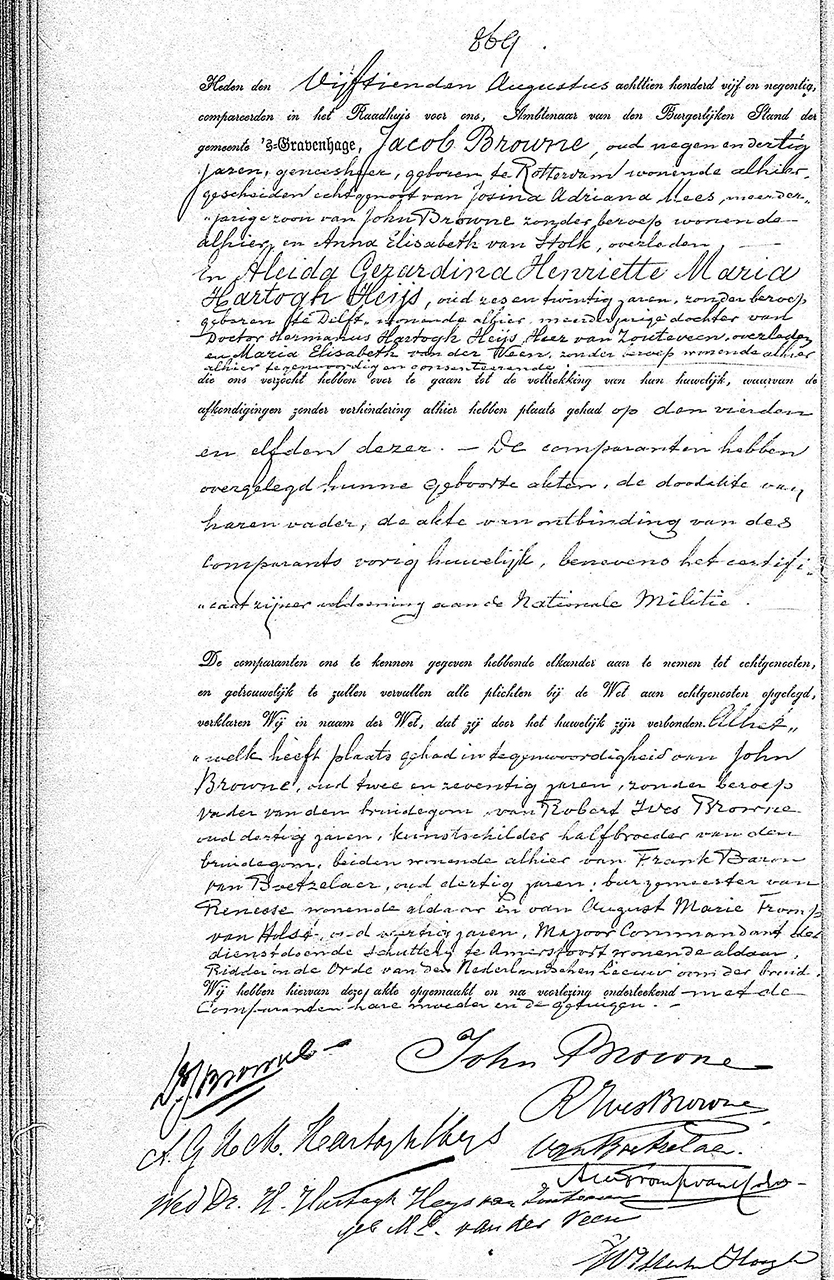 869.
Heden den Vijftienden Augustus achttien honderd vijf en negentig,
compareerden in het Raadhuis voor ons, Ambtenaar van den Burgerlijken Stand der
gemeente 's-Gravenhage, Jacob Browne, oud negen en dertig
jaren, geneesheer, geboren te Rotterdam wonende alhier,
gescheiden echtgenoot van Josina Adriana Mees, meerder„
„jarige zoon van John Browne zonder beroep wonende
alhier, en Anna Elisabeth van Stolk, overleden, —
En Aleida Gerardina Henriette Maria
Hartogh Heijs, oud zes en twintig jaren, zonder beroep
geboren te Delft, wonende alhier, meerderjarige dochter van
Doctor Hermanus Hartogh Heijs, Heer van Zouteveen, overleden
en Maria Elisabeth van der Veen, zonder beroep wonende alhier
alhier tegenwoordig en consenteerende,
die ons verzocht hebben over te gaan tot de voltrekking van hun huwelijk, waarvan de
afkondigingen zonder verhindering alhier hebben plaats gehad op den vierden
en elfden dezer. — De comparanten hebben
overgelegd hunne geboorte akten, de doodakte van
haren vader, de akte van ontbinding van des
comparants vorig huwelijk, benevens het certifi„
„caat zijner voldoening aan de Nationale Militie.
De comparanten ons te kennen gegeven hebbende elkander aan te nemen tot echtgenooten,
en getrouwelijk te zullen vervullen alle plichten bij de Wet aan echtgenooten opgelegd,
verklaren Wij in naam der Wet, dat zij door het huwelijk zijn verbonden. Al het„
„welk heeft plaats gehad in tegenwoordigheid van John
Browne, oud twee en zeventig jaren, zonder beroep
vader van den bruidegom, van Robert Ives Browne
oud dertig jaren, kunstschilder halfbroeder van den
bruidegom, beiden wonende alhier van Frank Baron
van Boetzelaer, oud dertig jaren, burgemeester van
Renesse wonende aldaar en van August Marie Tromp
van Holst, oud veertig jaren, Majoor Commandant der
dienstdoende Schutterij te Amersfoort wonende aldaar,
Ridder in de Orde van den Nederlandschen Leeuw oom der bruid.
Wij hebben hiervan deze akte opgemaakt en na voorlezing onderteekend met de
Comparanten hare moeder en de getuigen. —
Dr J. Browne
John Browne
R Ives Browne
A. G. H. M. Hartogh Heys
van Boetzelaer.
Wed Dr. H. Hartogh Heys van Zouteveen
geb M. E. van der Veen